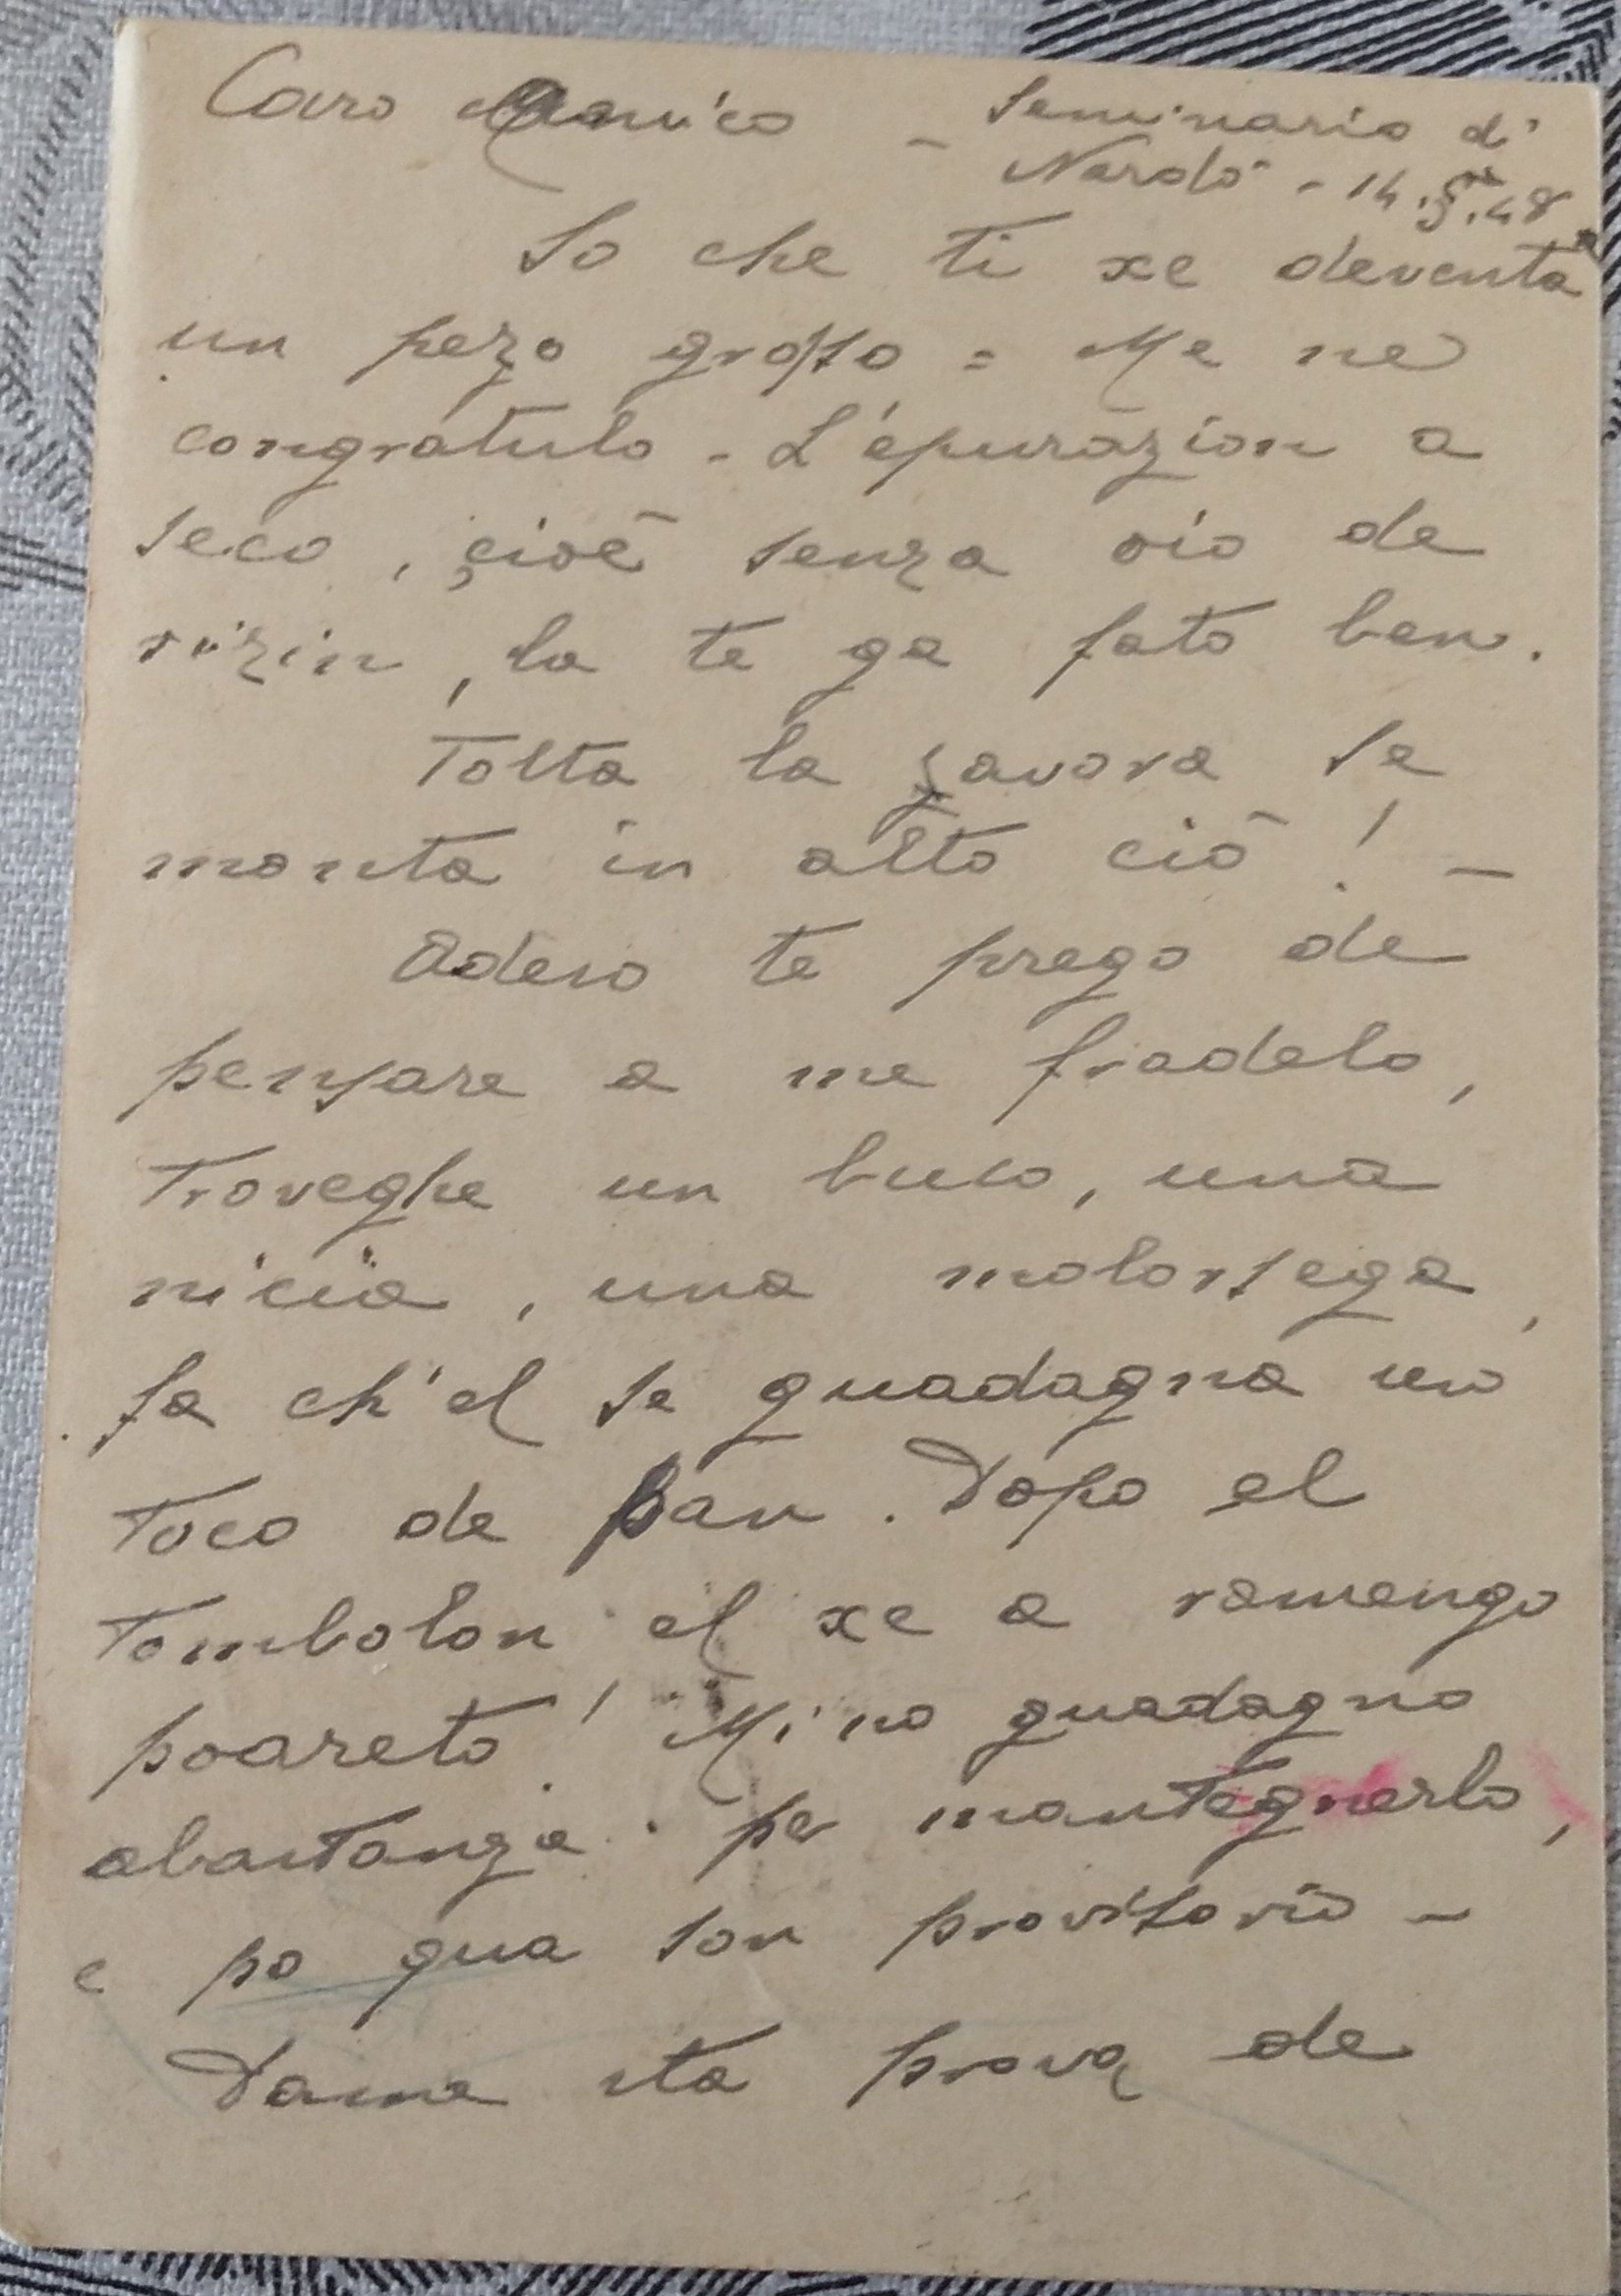 Caro Amico - Seminario di
Nardò - 14.5.48
So che ti xe deventà
un pezo grosso = Me ne
congratulo - L'epurazion a
seco, çioè senza oio de
rizin, la te ga fato ben.
Tolta la zavora se
monta in alto ciò! -
Adeso te prego de
pensare a me fradelo,
troveghe un buco, una
nicia, una molorsega,
fa ch'el se guadagna un
toco de pan. Dopo el
tombolon el xe a ramengo
poareto! Mi no guadagno
abastanza per mantegnerlo,
e po qua son provisorio -
Dame sta prova de